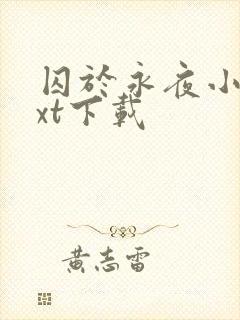 囚於永夜小
xt下載
黃志雷